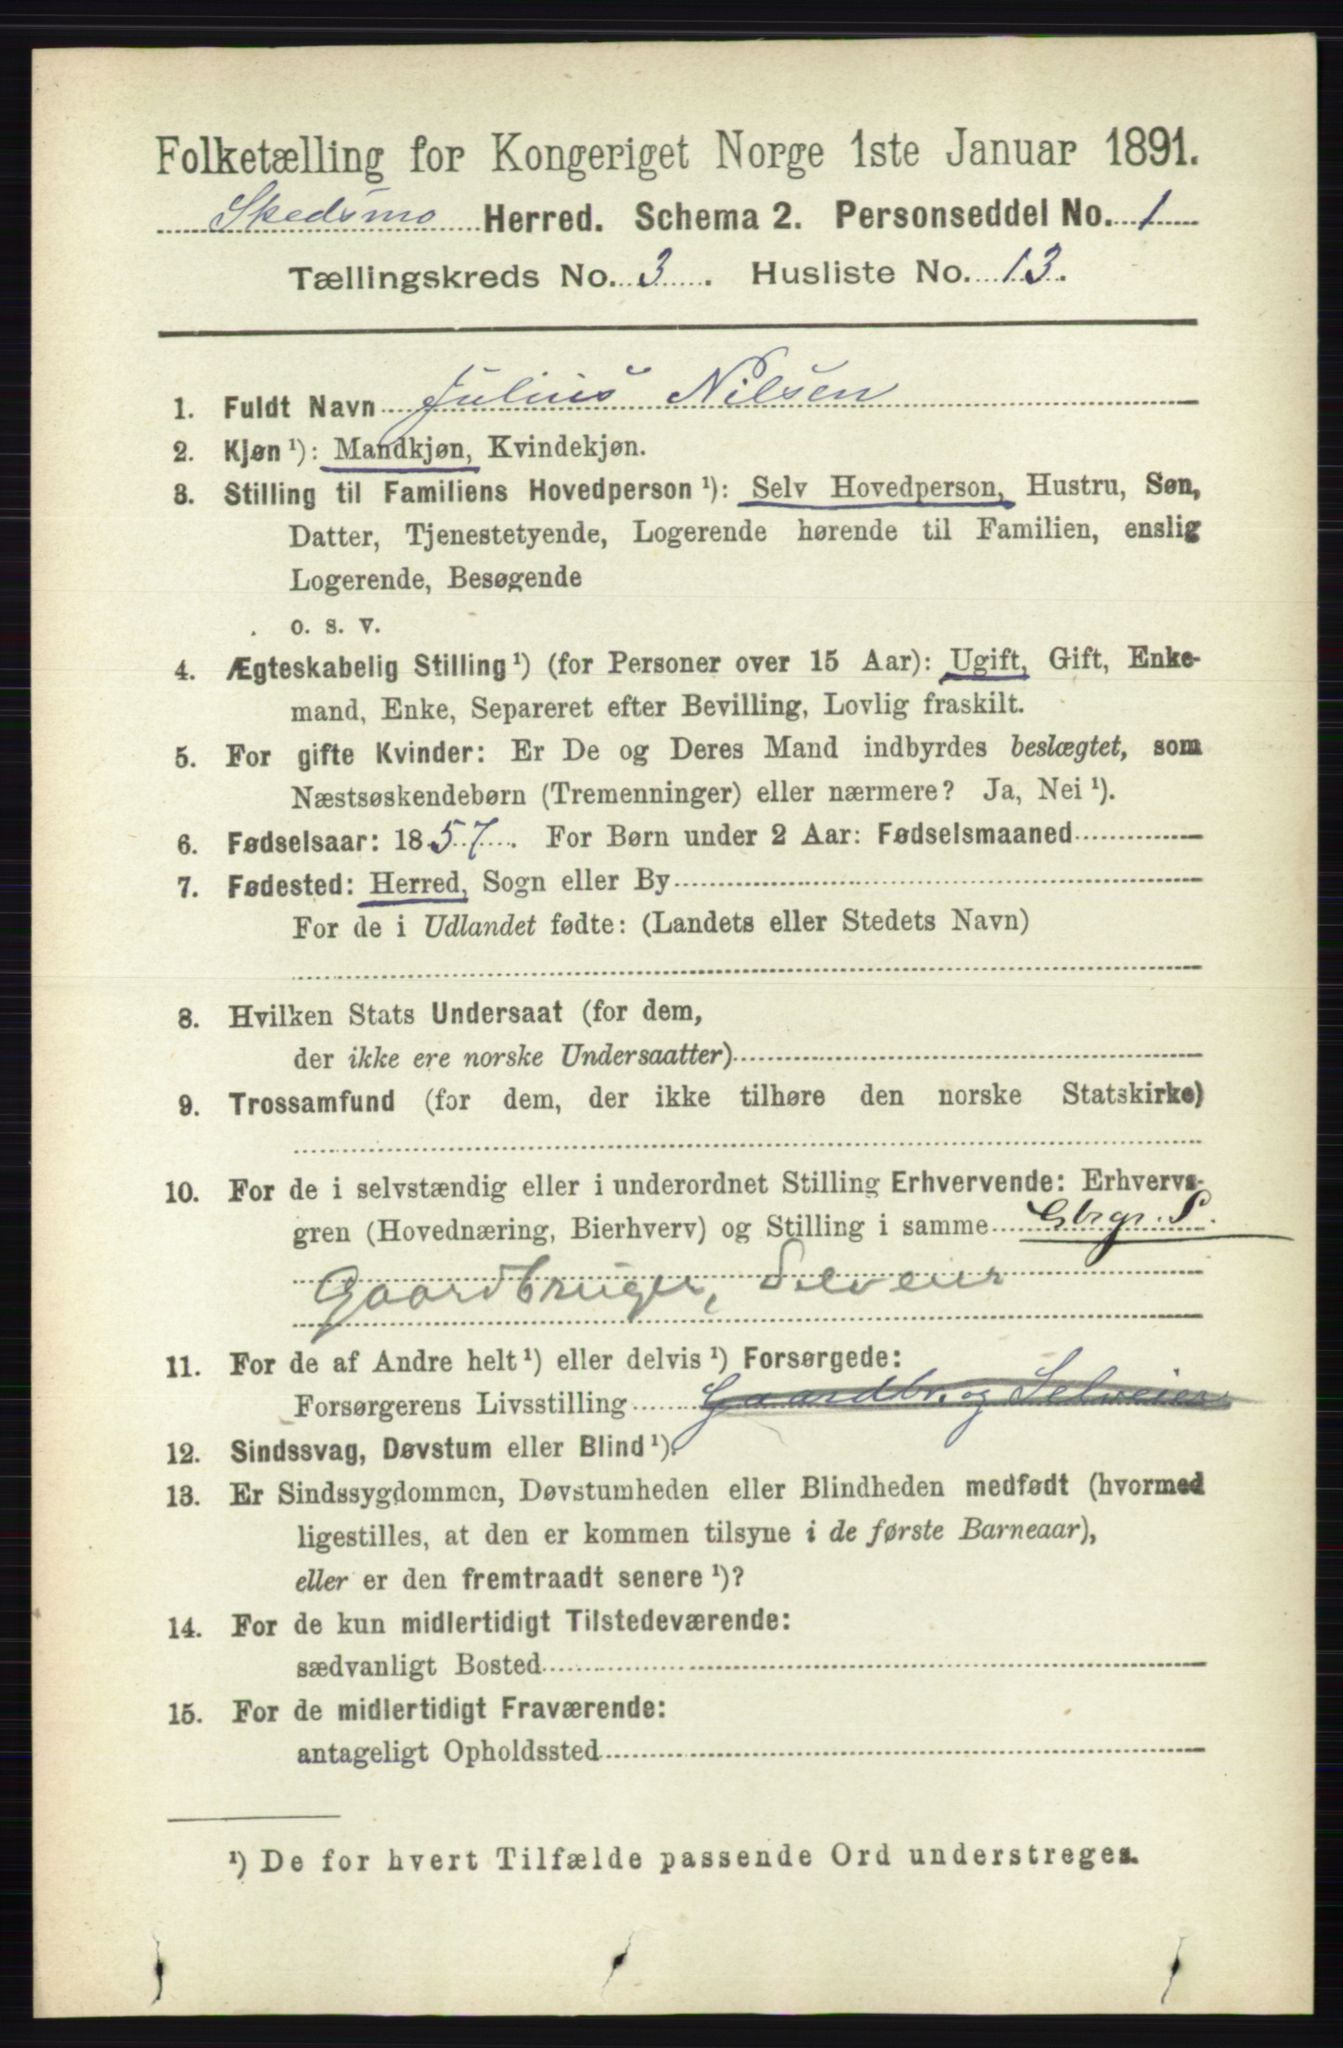 Folketælling for Kongeriget Norge 1ste Januar 1891.
Skedsmo Herred. Schema 2. Personseddel No. 1
Tællingskreds No. 3. Husliste No. 13.
1. Fuldt Navn Julius Nilsen
2. Kjøn ¹): Mandkjøn, Kvindekjøn.
3. Stilling til Familiens Hovedperson ¹): Selv Hovedperson, Hustru, Søn,
Datter, Tjenestetyende, Logerende hørende til Familien, enslig
Logerende, Besøgende
o. s. v.
4. Ægteskabelig Stilling ¹) (for Personer over 15 Aar): Ugift, Gift, Enke-
mand, Enke, Separeret efter Bevilling, Lovlig fraskilt.
5. For gifte Kvinder: Er De og Deres Mand indbyrdes beslægtet, som
Næstsøskendebørn (Tremenninger) eller nærmere? Ja, Nei ¹).
6. Fødselsaar: 1857. For Børn under 2 Aar: Fødselsmaaned
7. Fødested: Herred, Sogn eller By
For de i Udlandet fødte: (Landets eller Stedets Navn)
8. Hvilken Stats Undersaat (for dem,
der ikke ere norske Undersaatter)
9. Trossamfund (for dem, der ikke tilhøre den norske Statskirke)
10. For de i selvstændig eller i underordnet Stilling Erhvervende: Erhvervs-
gren (Hovednæring, Bierhverv) og Stilling i samme Gbrgr. S.
Gaardbruger, Selveier
11. For de af Andre helt ¹) eller delvis ¹) Forsørgede:
Forsørgerens Livsstilling Gaardbr. og Selveier
12. Sindssvag, Døvstum eller Blind ¹).
13. Er Sindssygdommen, Døvstumheden eller Blindheden medfødt (hvormed
ligestilles, at den er kommen tilsyne i de første Barneaar),
eller er den fremtraadt senere ¹)?
14. For de kun midlertidigt Tilstedeværende:
sædvanligt Bosted
15. For de midlertidigt Fraværende:
antageligt Opholdssted
¹) De for hvert Tilfælde passende Ord understreges.